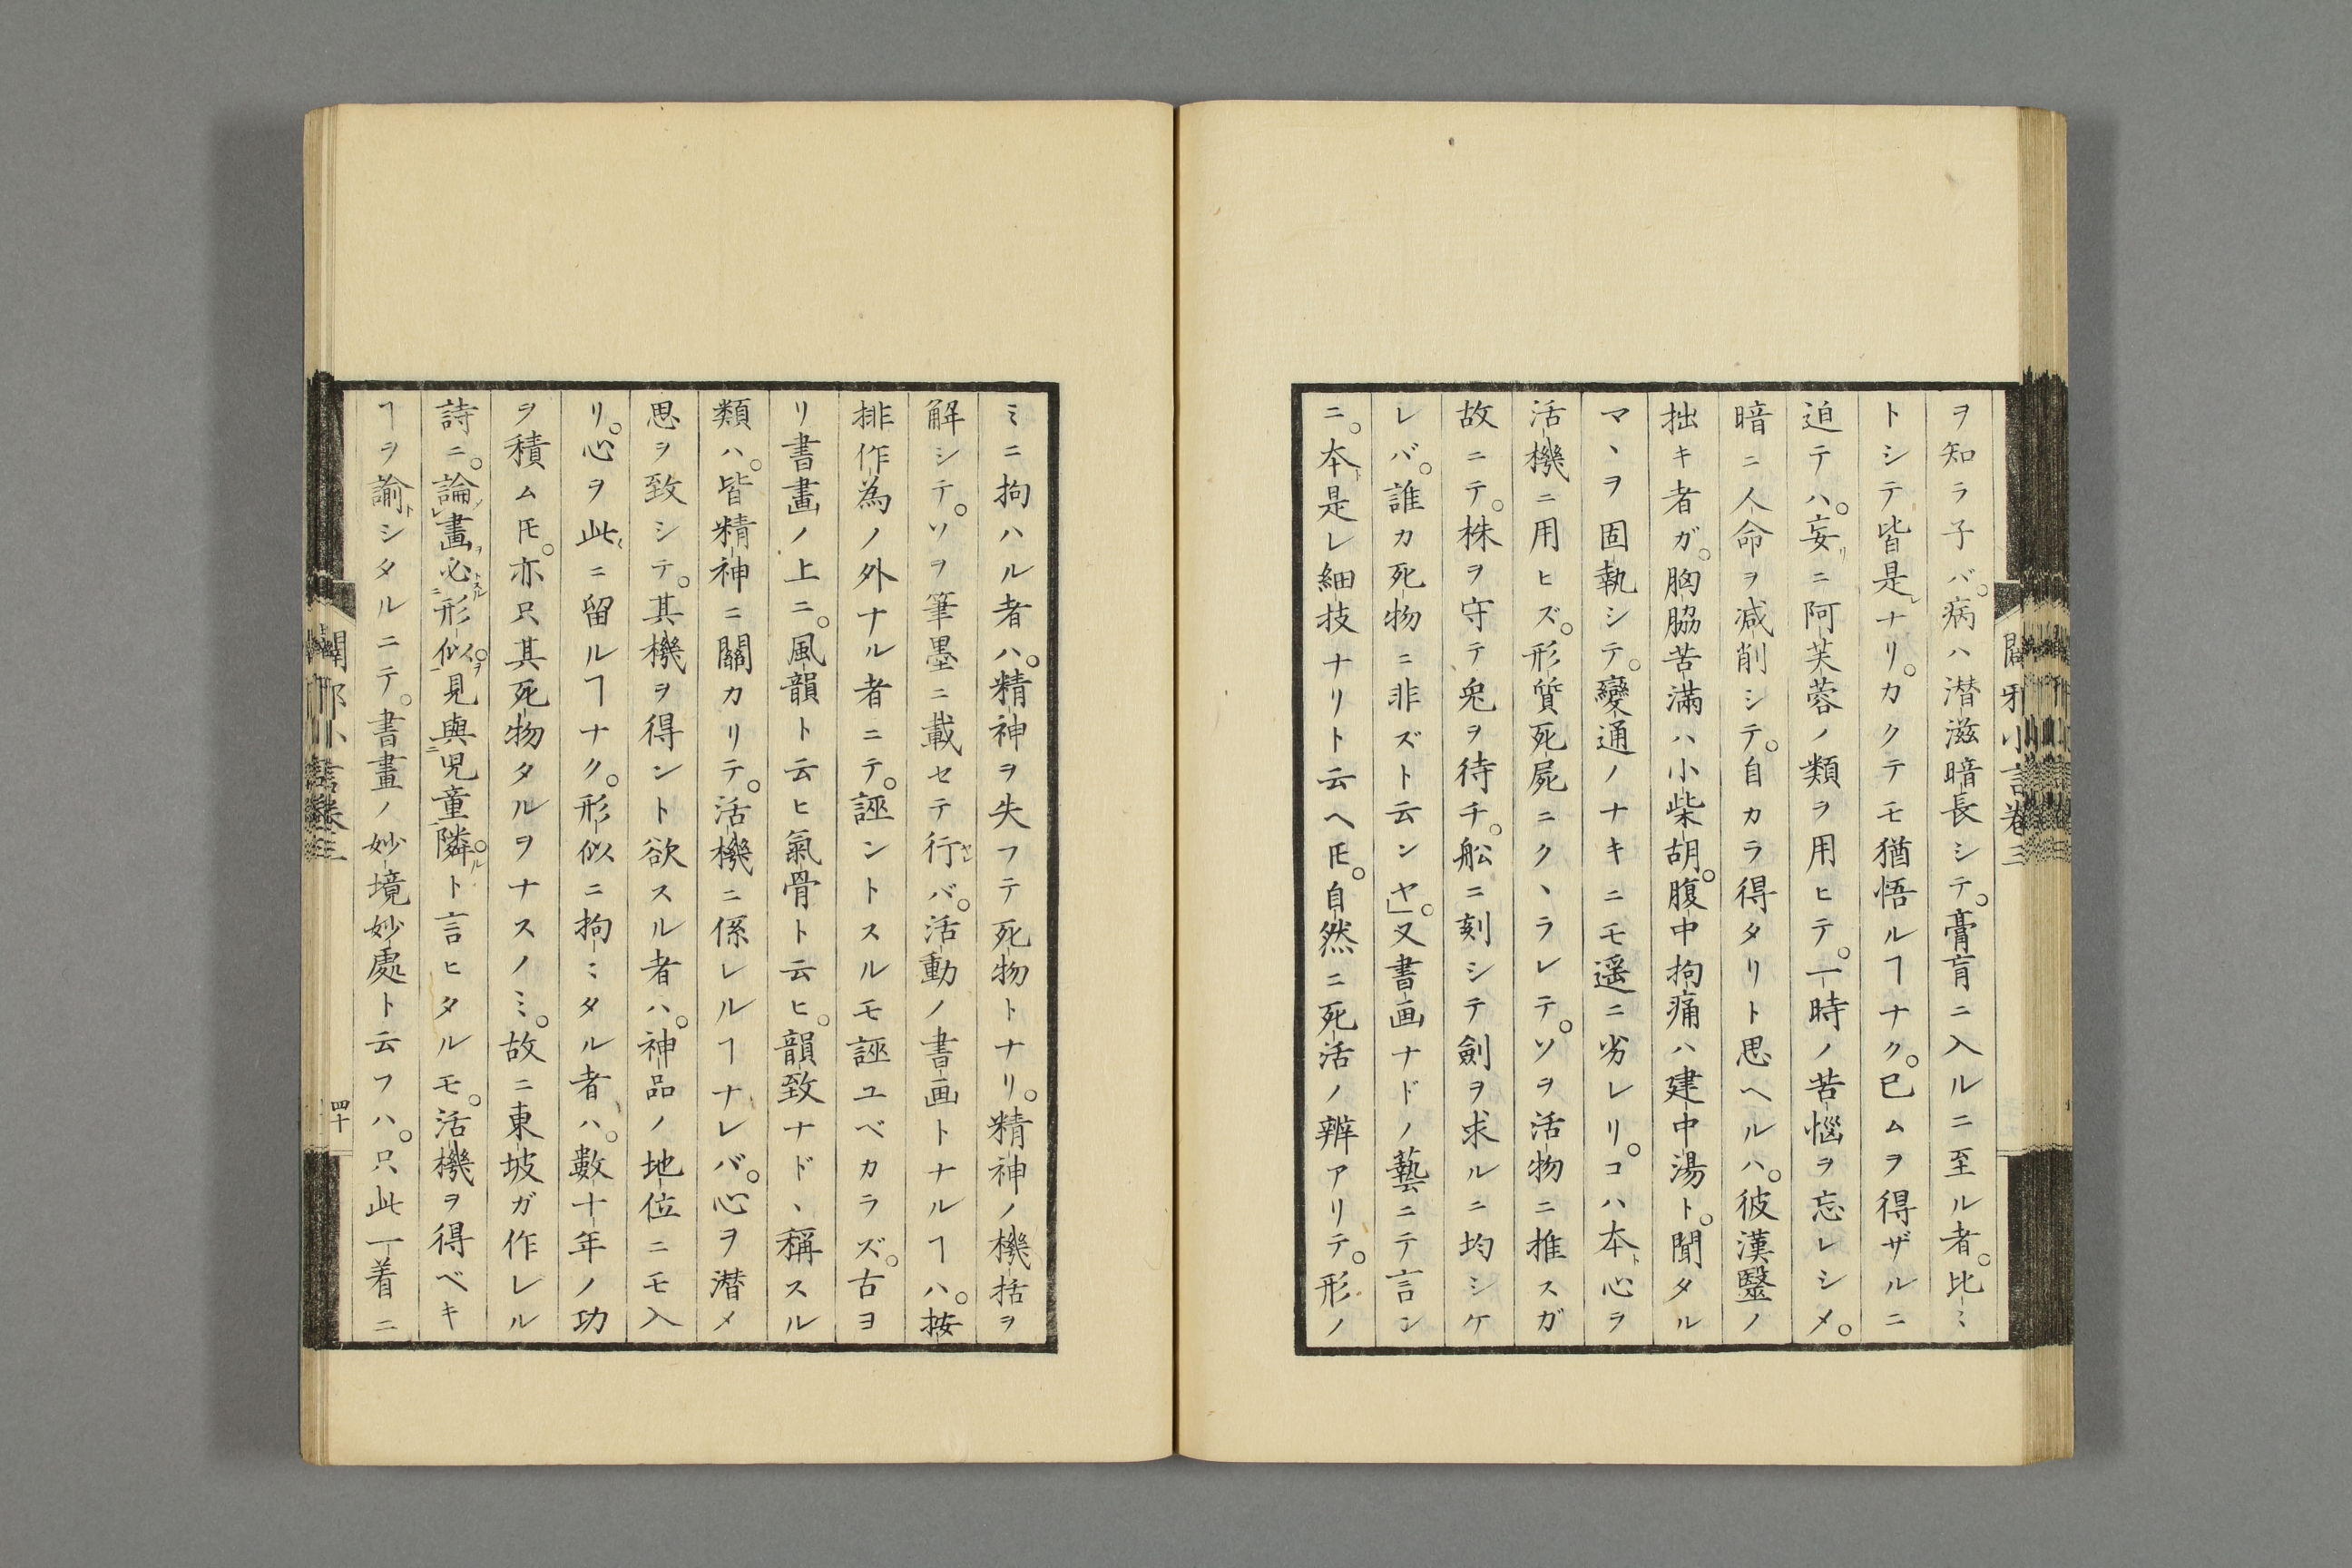 ヲ知ラ子バ。病ハ潜滋暗長シテ。膏肓ニ入ルニ至ル者。比〻
トシテ皆是レナリ。カクテモ猶悟ルヿナク。已ムヲ得ザルニ
迫テハ。妄リニ阿芙蓉ノ類ヲ用ヒテ。一時ノ苦悩ヲ忘レシメ。
暗ニ人命ヲ減削シテ。自カラ得タリト思ヘルハ。彼漢醫ノ
拙キ者ガ。胸脇苦滿ハ小柴胡。腹中拘痛ハ建中湯ト。聞タル
マヽヲ固執シテ。變通ノナキニモ遥ニ劣レリ。コハ本ト心ヲ
活機ニ用ヒズ。形質死屍ニクヽラレテ。ソヲ活物ニ推スガ
故ニテ。株ヲ守テ兎ヲ待チ。舩ニ刻シテ劍ヲ求ルニ均シケ
レバ。誰カ死物ニ非ズト云ンヤ」。又書画ナドノ藝ニテ言ン
ニ。本ト是レ細技ナリト云ヘ𪜈。自然ニ死活ノ辨アリテ。形ノ
闢邪小言卷三
ミニ拘ハル者ハ。精神ヲ失フテ死物トナリ。精神ノ機括ヲ
解シテ。ソヲ筆墨ニ載セテ行ヤレバ。活動ノ書画トナルヿハ。按
排作為ノ外ナル者ニテ。誣ントスルモ誣ユベカラズ。古ヨ
リ書畫ノ上ニ。風韻ト云ヒ氣骨ト云ヒ。韻致ナドヽ稱スル
類ハ。皆精神ニ關カリテ。活機ニ係レルヿナレバ。心ヲ潜メ
思ヲ致シテ。其機ヲ得ント欲スル者ハ。神品ノ地位ニモ入
リ。心ヲ此ニ留ルヿナク。形似ニ拘ミタル者ハ。數十年ノ功
ヲ積ム𪜈。亦只其死物タルヲナスノミ。故ニ東坡ガ作レル
詩ニ。論畫必形似。見與兒童隣。ト言ヒタルモ。活機ヲ得ベキ
ヿヲ諭シタルニテ。書畫ノ妙境妙處ト云フハ。只此一着ニ
闢邪小言卷三
四十